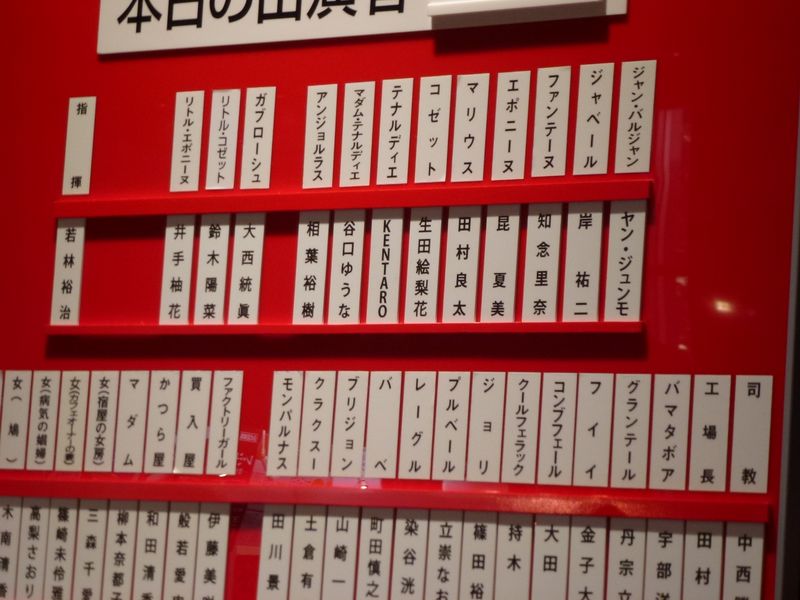 本日の出演者
ジャン・バルジャン
ジャベール
ファンテーヌ
エポニーヌ
マリウス
コゼット
テナルディエ
マダム・テナルディエ
アンジョルラス
ガブローシュ
リトル・コゼット
リトル・エポニーヌ
指揮
ヤン・ジュンモ
岸祐二
知念里奈
昆夏美
田村良太
生田絵梨花
KENTARO
谷口ゆうな
相葉裕樹
大西統眞
鈴木陽菜
井手柚花
若林裕治
司教
工場長
バマタボア
グランテール
フイイ
コンブフェール
クールフェラック
ジョリ
プルベール
レーグル
バベ
ブリジョン
クラクスー
モンパルナス
ファクトリーガール
買入屋
かつら屋
マダム
女(宿屋の女房)
女(カフェオーナーの妻)
女(病気の娼婦)
女(鳩)
中西
田村
宇部洋
丹宗立
金子大
大田
持木
篠田裕
立崇なお
染谷洸
町田慎之
山崎一
土倉有
田川景
伊藤美
般若愛
和田清香
柳本奈都子
三森千愛
篠崎未伶雅
高梨さおり
木南清香